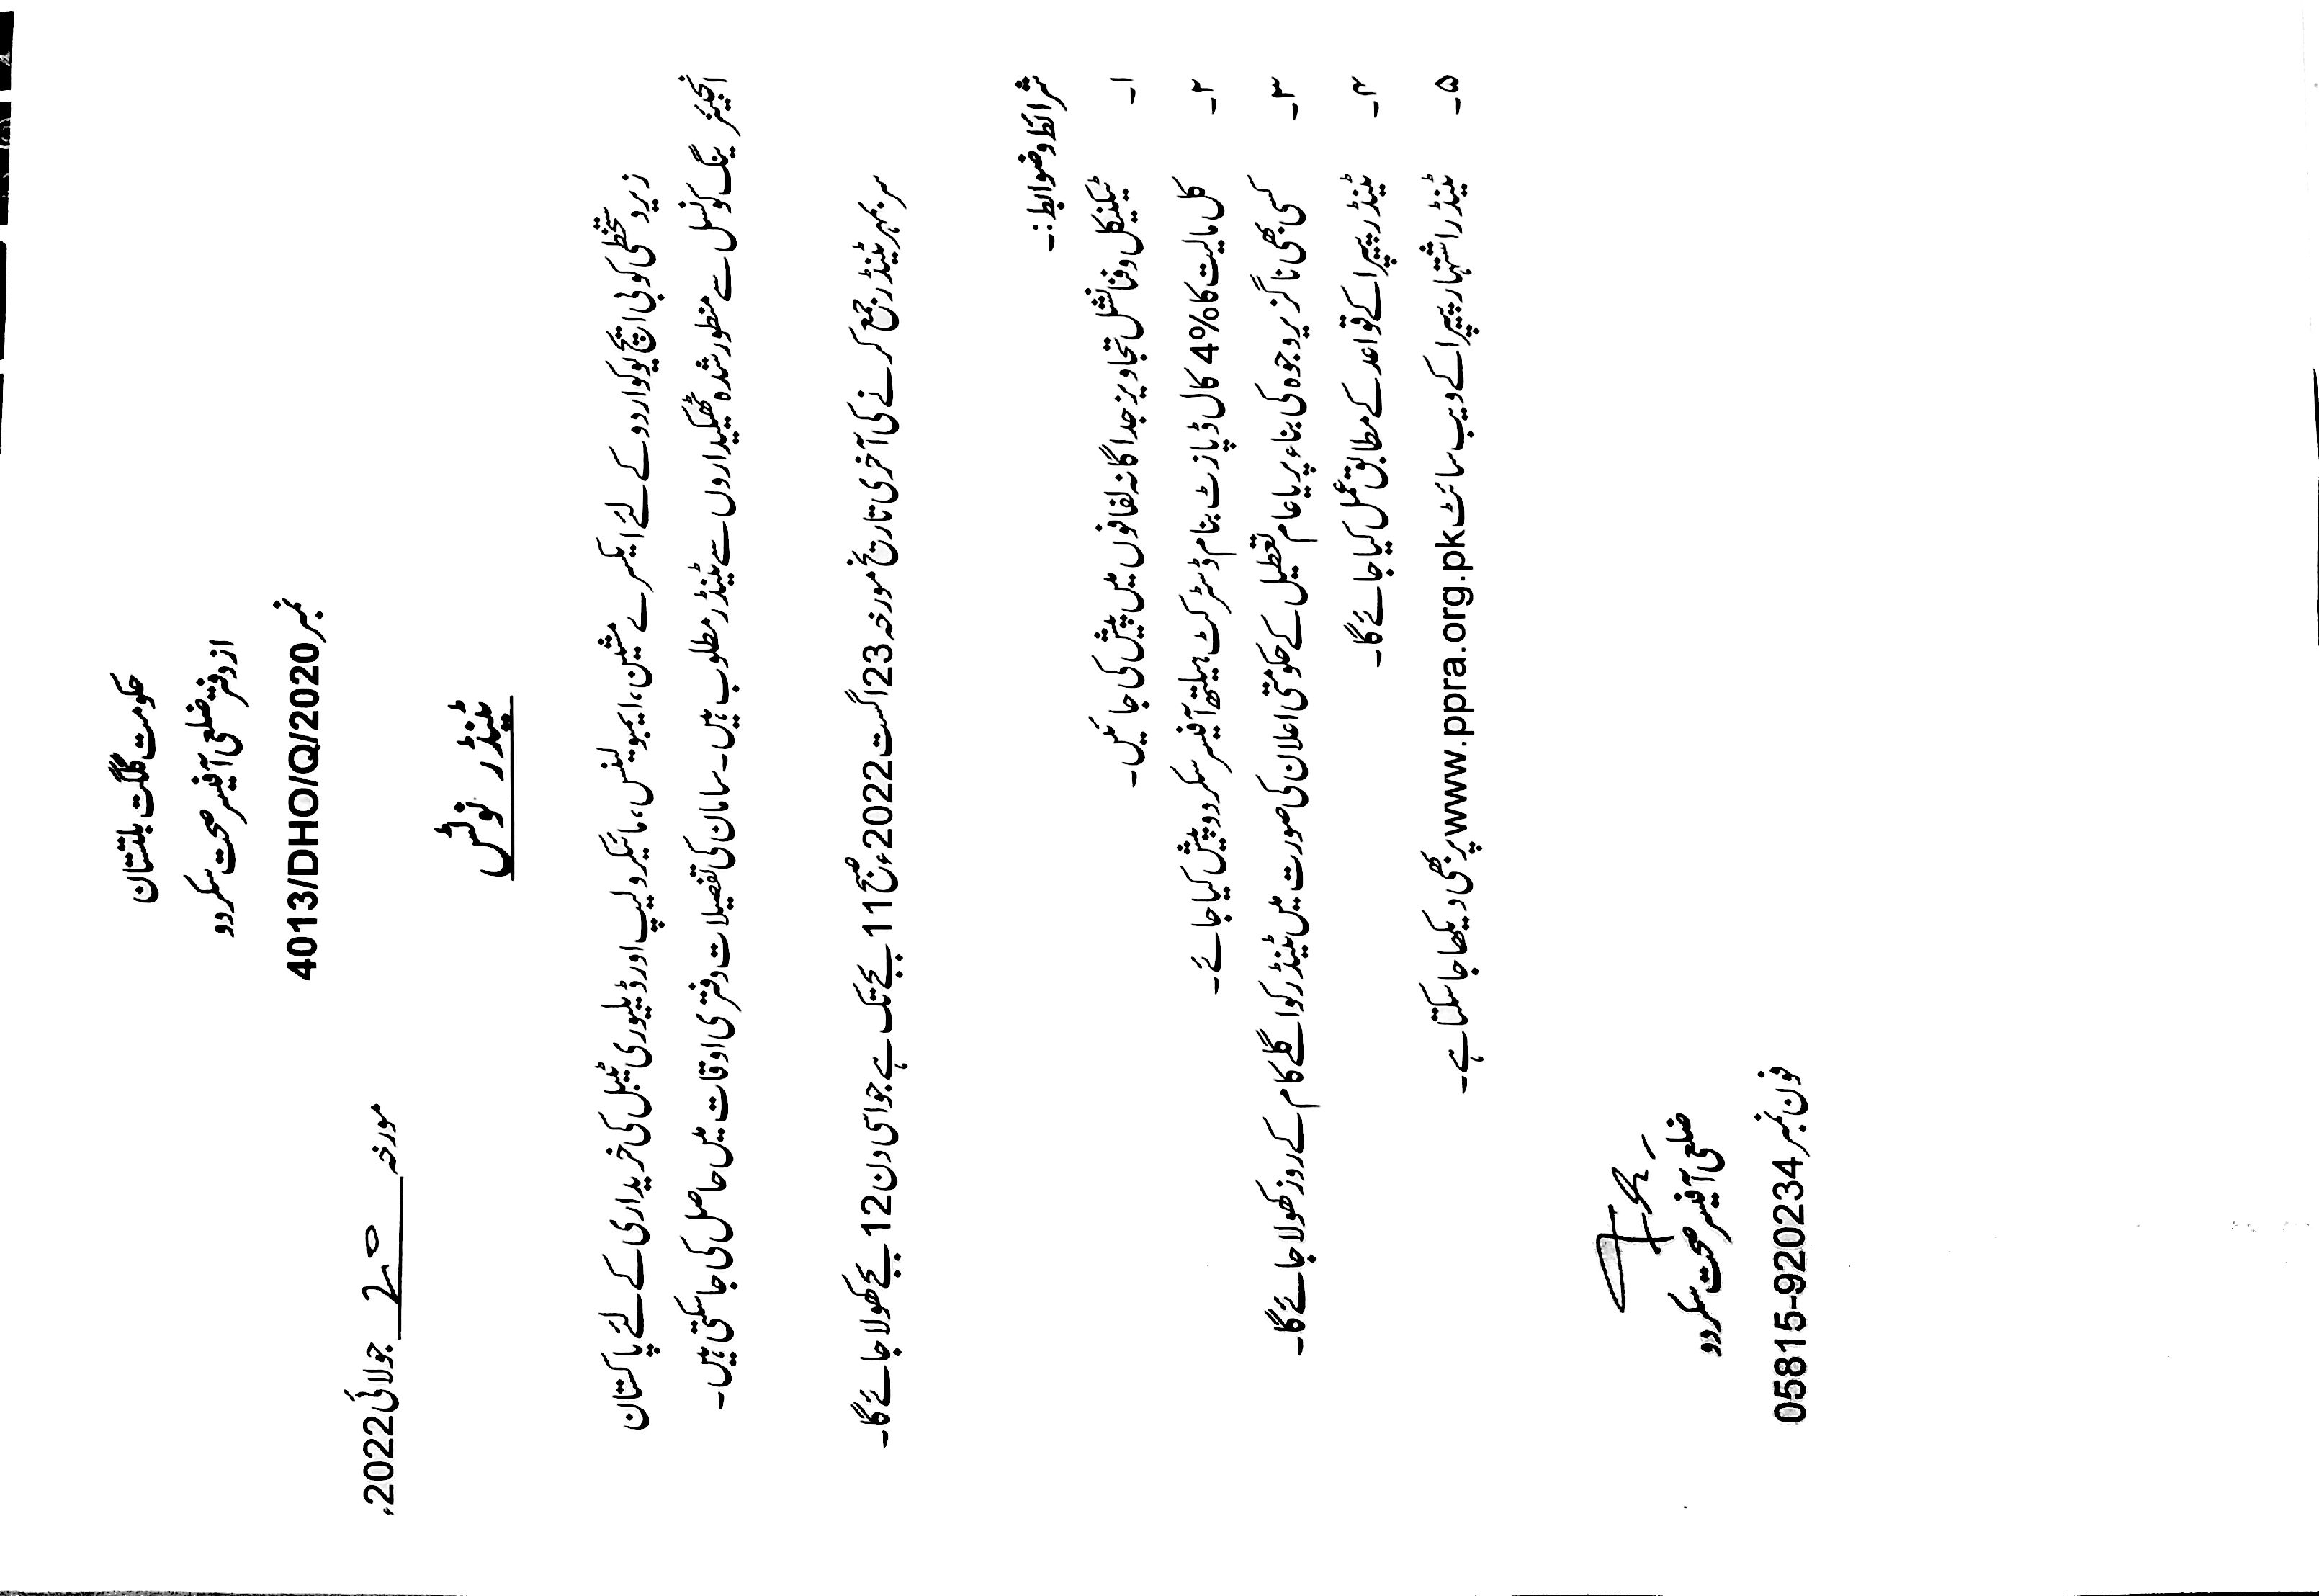 حکومت گلگت بلتستان
از دفتر ضلعی آفیسر صحت سکردو
نمبر 4013/DHO/Q/2020
مورخہ 20 جولائی 2022ء
ٹینڈر نوٹس
زیر دستخطی کو بی ایچ یو کواردو کے لئے ایکسرے مشین، ایمبولینس، مائیکرولیپ اور ڈیلیوری ٹیبل کی خریداری کے لئے پاکستان
انجینئرینگ کونسل سے منظور شدہ ٹھیکیداروں سے ٹینڈر مطلوب ہیں۔ سامان کی تفصیلات دفتری اوقات میں حاصل کی جاسکتی ہیں۔
سربمہر ٹینڈر جمع کرنے کی آخری تاریخ مورخہ 23 اگست 2022ء صبح 11 بجے تک ہے جو اسی دن 12 بجے کھولا جائے گا۔
شرائط و ضوابط:۔
۱۔ ٹیکنیکل و فنانشل تجاویز جداگانہ لفافوں میں پیش کی جائیں۔
۲۔ کل مالیت کا 4% کال ڈپازٹ بنام ڈسٹرکٹ ہیلتھ آفیسر سکردو پیش کیا جائے۔
۳۔ کسی بھی ناگزیر وجوہ کی بناء پر یا عام تعطیل کے حکومتی اعلان کی صورت میں ٹینڈر کو اگلے کام کے روز کھولا جائے گا۔
۴۔ ٹینڈر پیپرا کے قواعد کے مطابق عمل کیا جائے گا۔
۵۔ ٹینڈر اشتہار پیپرا کے ویب سائٹ www.ppra.org.pk پر بھی دیکھا جاسکتا ہے۔
ضلعی آفیسر صحت سکردو
فون نمبر 05815-920234